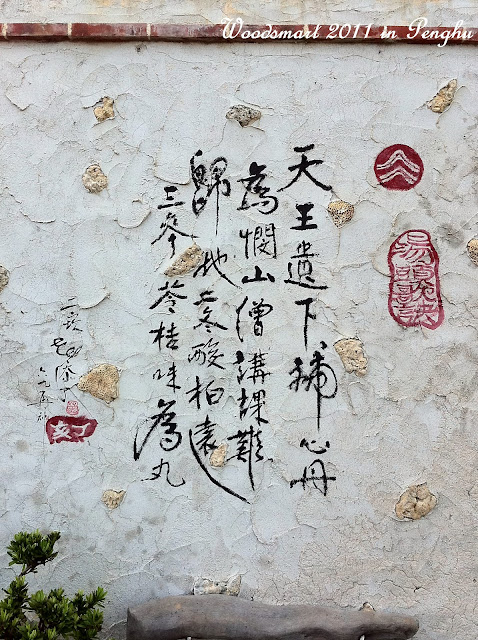 Woodsmart 2011 in Penghu
湯頭歌訣
天王遺下補心丹
為憫山僧講課難
歸地二冬酸柏遠
三參苓桔味為丸